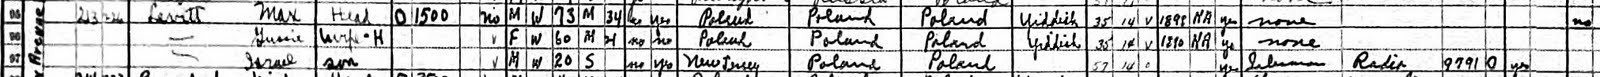 95 Levitt Max Head O 1500 no M W 73 M 34 no yes Poland Poland Poland Yiddish 35 14 V 1898 NA yes none no
96 — Gussie Wife-H V F W 60 M 21 no no Poland Poland Poland Yiddish 35 14 V 1890 NA yes none
97 — Israel son V M W 20 S no yes New Jersey Poland Poland 57 14 0 yes Salesman Radio 9791 O yes